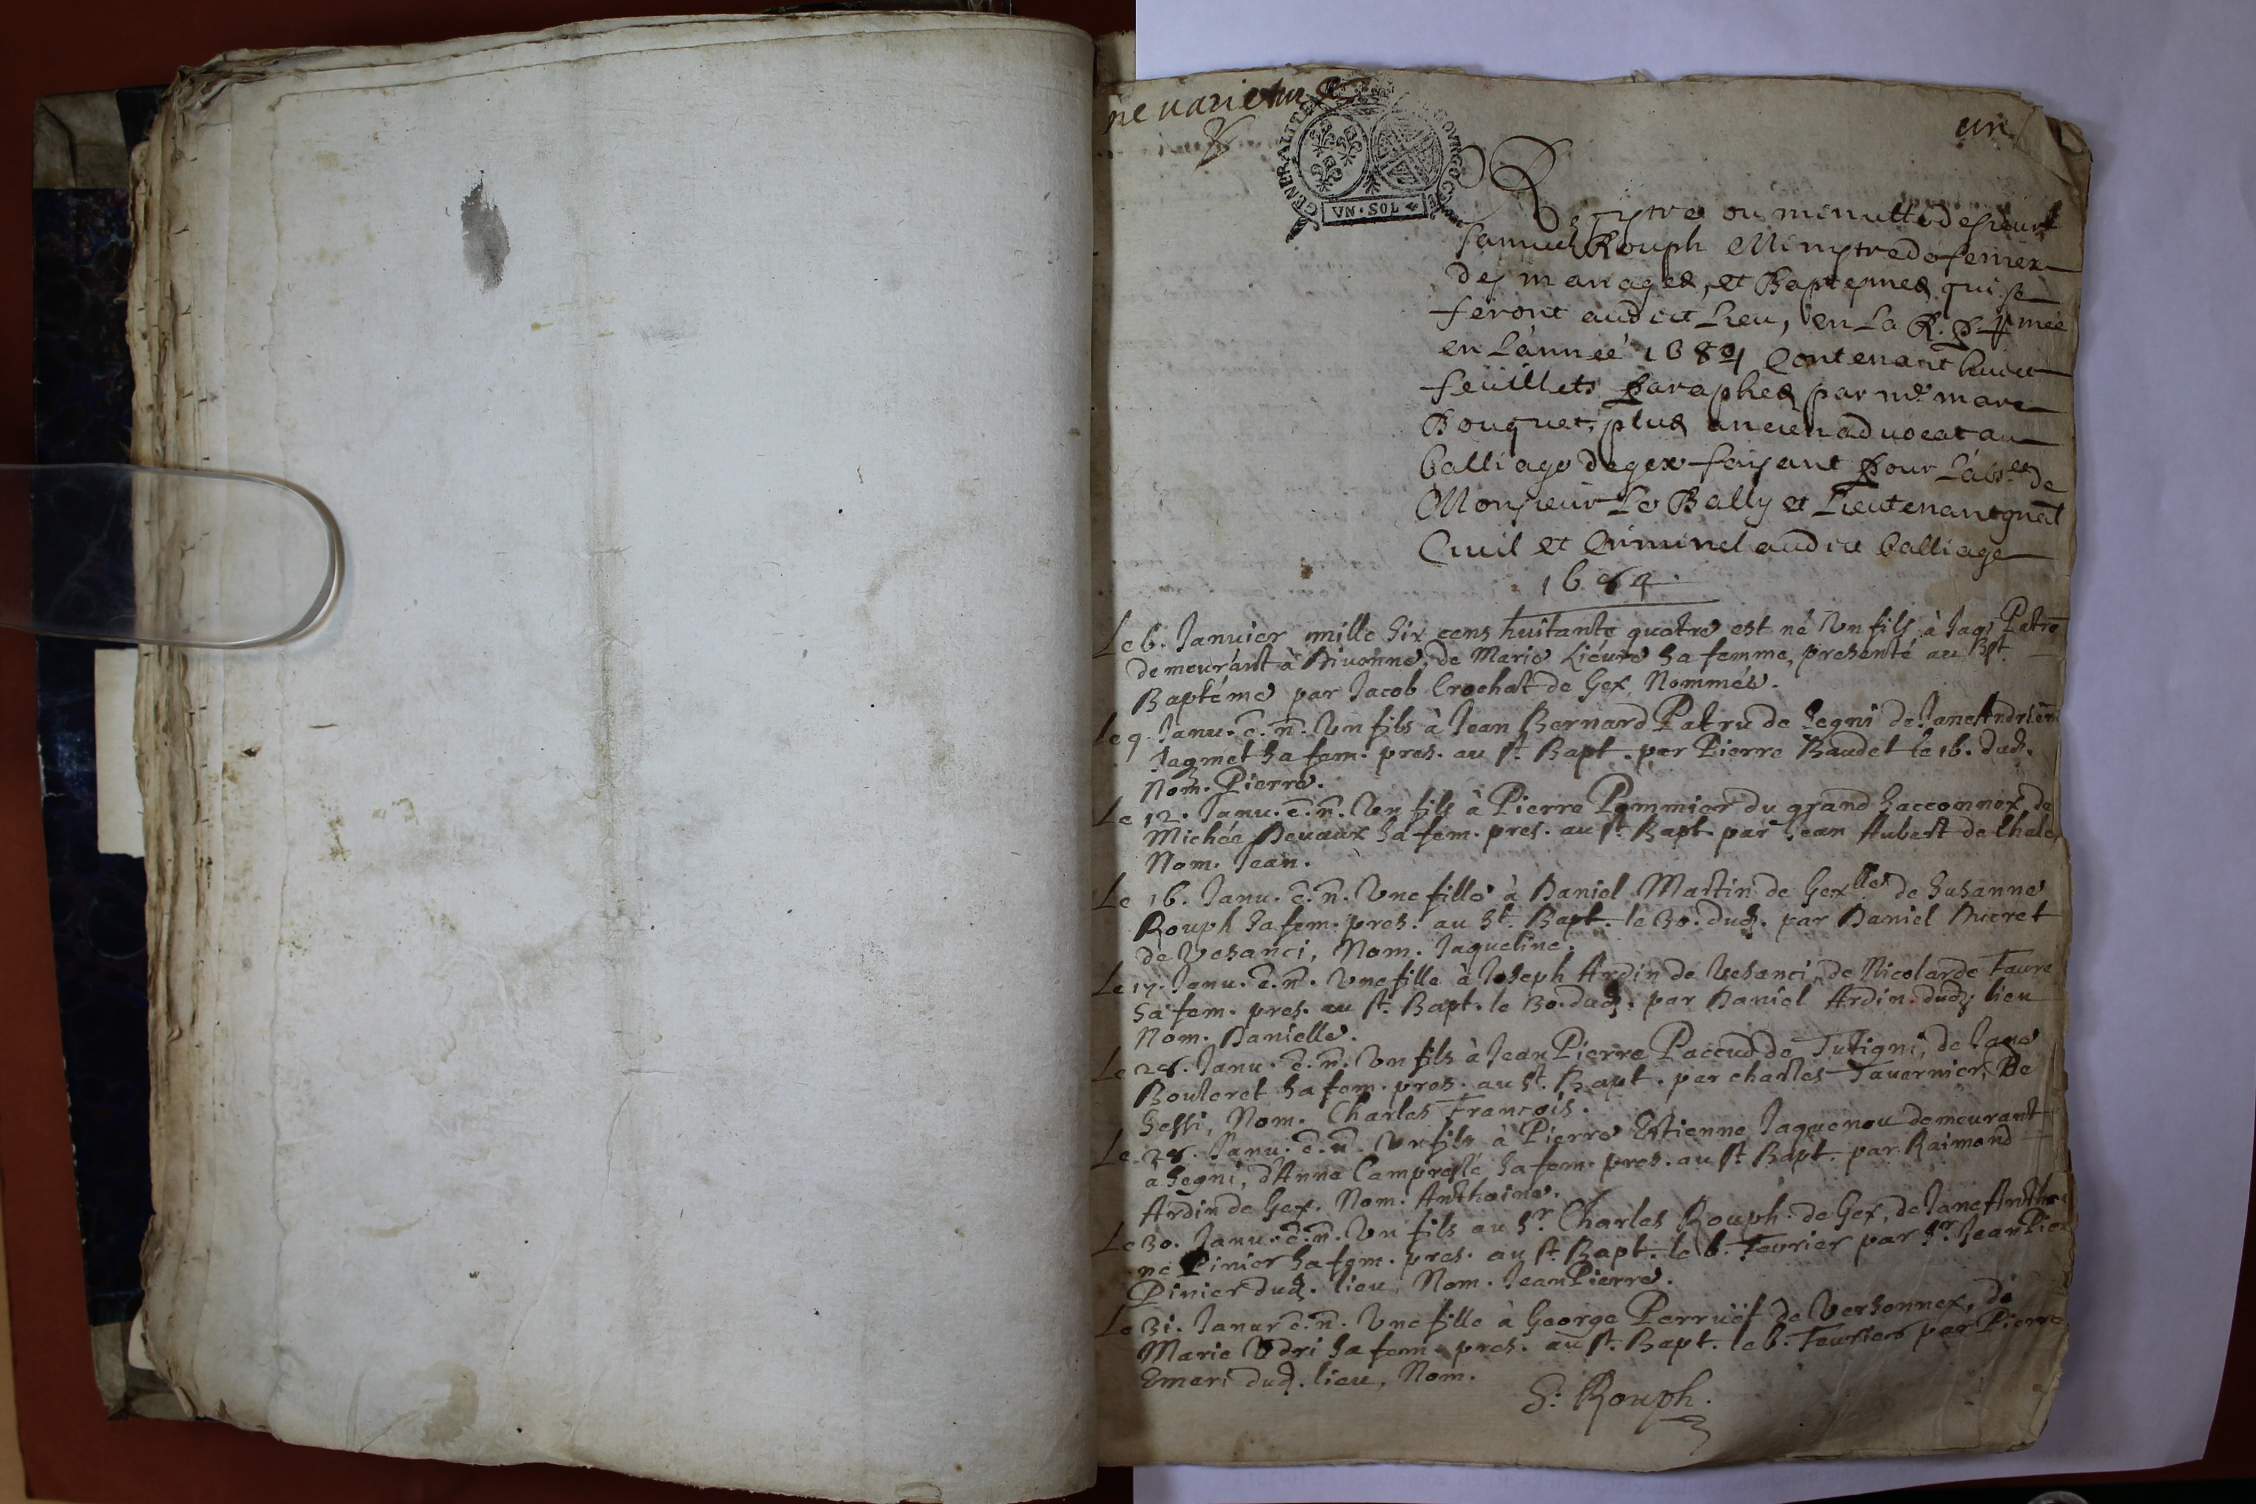 ne varietur
GENERALITE BOVRGOGNE
VN·SOL
un
Registre ou minutte de sieur
Samuel Rouph Ministre de fernex
des mariages, et Baptesmes qui se
feront audict Lieu, en La R. P. Rmée
en L'année 1684 Contenant huict
feüillets Paraphes par me marc
Bouquet, plus ancien advocat au
balliage de gex faisant Pour L'abs.ce de
Monsieur Le Bally et Lieutenant gnãl
Civil et Criminel audict balliage
1684.
Le 6. Janvier mille six cens huitante quatre est né Un fils à Jaq. Patre
demeurant à Divonne, de Marie Liévre sa femme, presenté au
Baptéme par Jacob Crochat de Gex, Nommé
Le 9. Janu. e. n. Un fils à Jean Bernard Patru de Segni de Jane
Jagmet sa fem. pres. au St. Bapt. par Pierre Baudet le 16. dud.
Nom. Pierre.
Le 12. Janu. e. n. Un fils à Pierre Pommier du grand Sacconnex, de
Michée Devaux sa fem. pres. au St. Bapt. par Jean Aubert de
Nom. Jean.
Le 16. Janu. e. n. Une fille à Daniel Martin de Gex, de Susanne
Rouph sa fem. pres. au St. Bapt. le 30. dud. par Daniel Ducret
de Vesanci, Nom. Jaqueline.
Le 17. Janu. e. n. Une fille à Joseph Ardin de Vesanci, de Nicolarde Favre
sa fem. pres. au St. Bapt. le 30. dud. par Daniel Ardin dud. lieu
Nom. Danielle.
Le 28. Janu. e. n. Un fils à Jean Pierre Paccud de Tutigni, de Jane
Bouleret sa fem. pres. au St. Bapt. par charles Tavernier, De
Sessi, Nom. Charles François.
Le 28. Janu. e. n. Un fils à Pierre Estienne Jaquenou demeurant
à Segni, d'Anne sa fem. pres. au St. Bapt. par Raimond
Ardin de Gex. Nom. Anthoine.
Le 30. Janu. e. n. Un fils au Sr. Charles Rouph de Gex, de Jane Antho
ne Pinier sa fem. pres. au St. Bapt. le 6. Fevrier par Sr. Jean Pier
Pinier dud. lieu, Nom. Jean Pierre.
Le 31. Janur e. n. Une fille à George Perruët de Versonnex, de
Marie Udri sa fem. pres. au St. Bapt. le 6. Feurier par Pierre
Emeri dud. lieu, Nom.
S: Rouph.